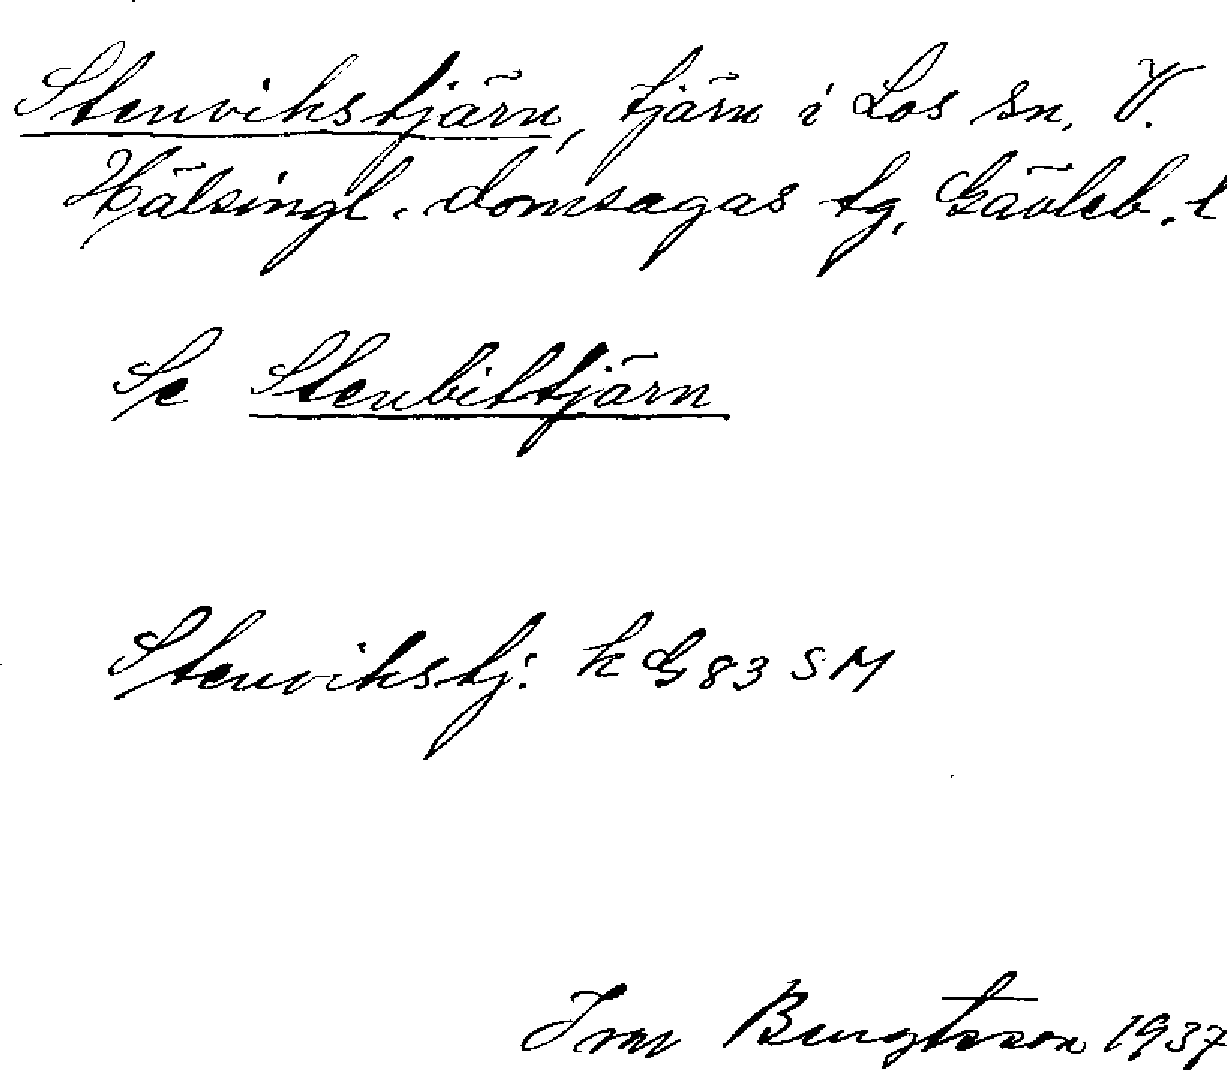 Stenvikstjärn, tjärn i Los sn, V.
Hälsingl. domsagas tg, Gävleb. l
Se Stenbittjärn
Stenvikstj: k G 83 SM
Bengtsson 1937